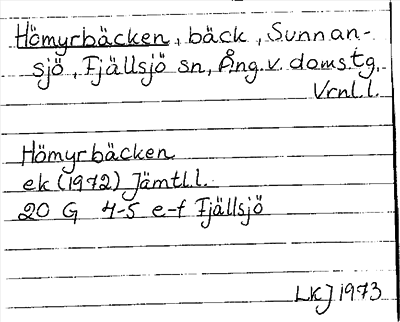 Hömyrbäcken, bäck, Sunnan-
sjö, Fjällsjö sn, Ång.v. doms.tg,
Vrnl.l.
Hömyrbäcken
ek (1972) Jämtl.l.
20 G 4-5 e-f Fjällsjö
LKJ 1973